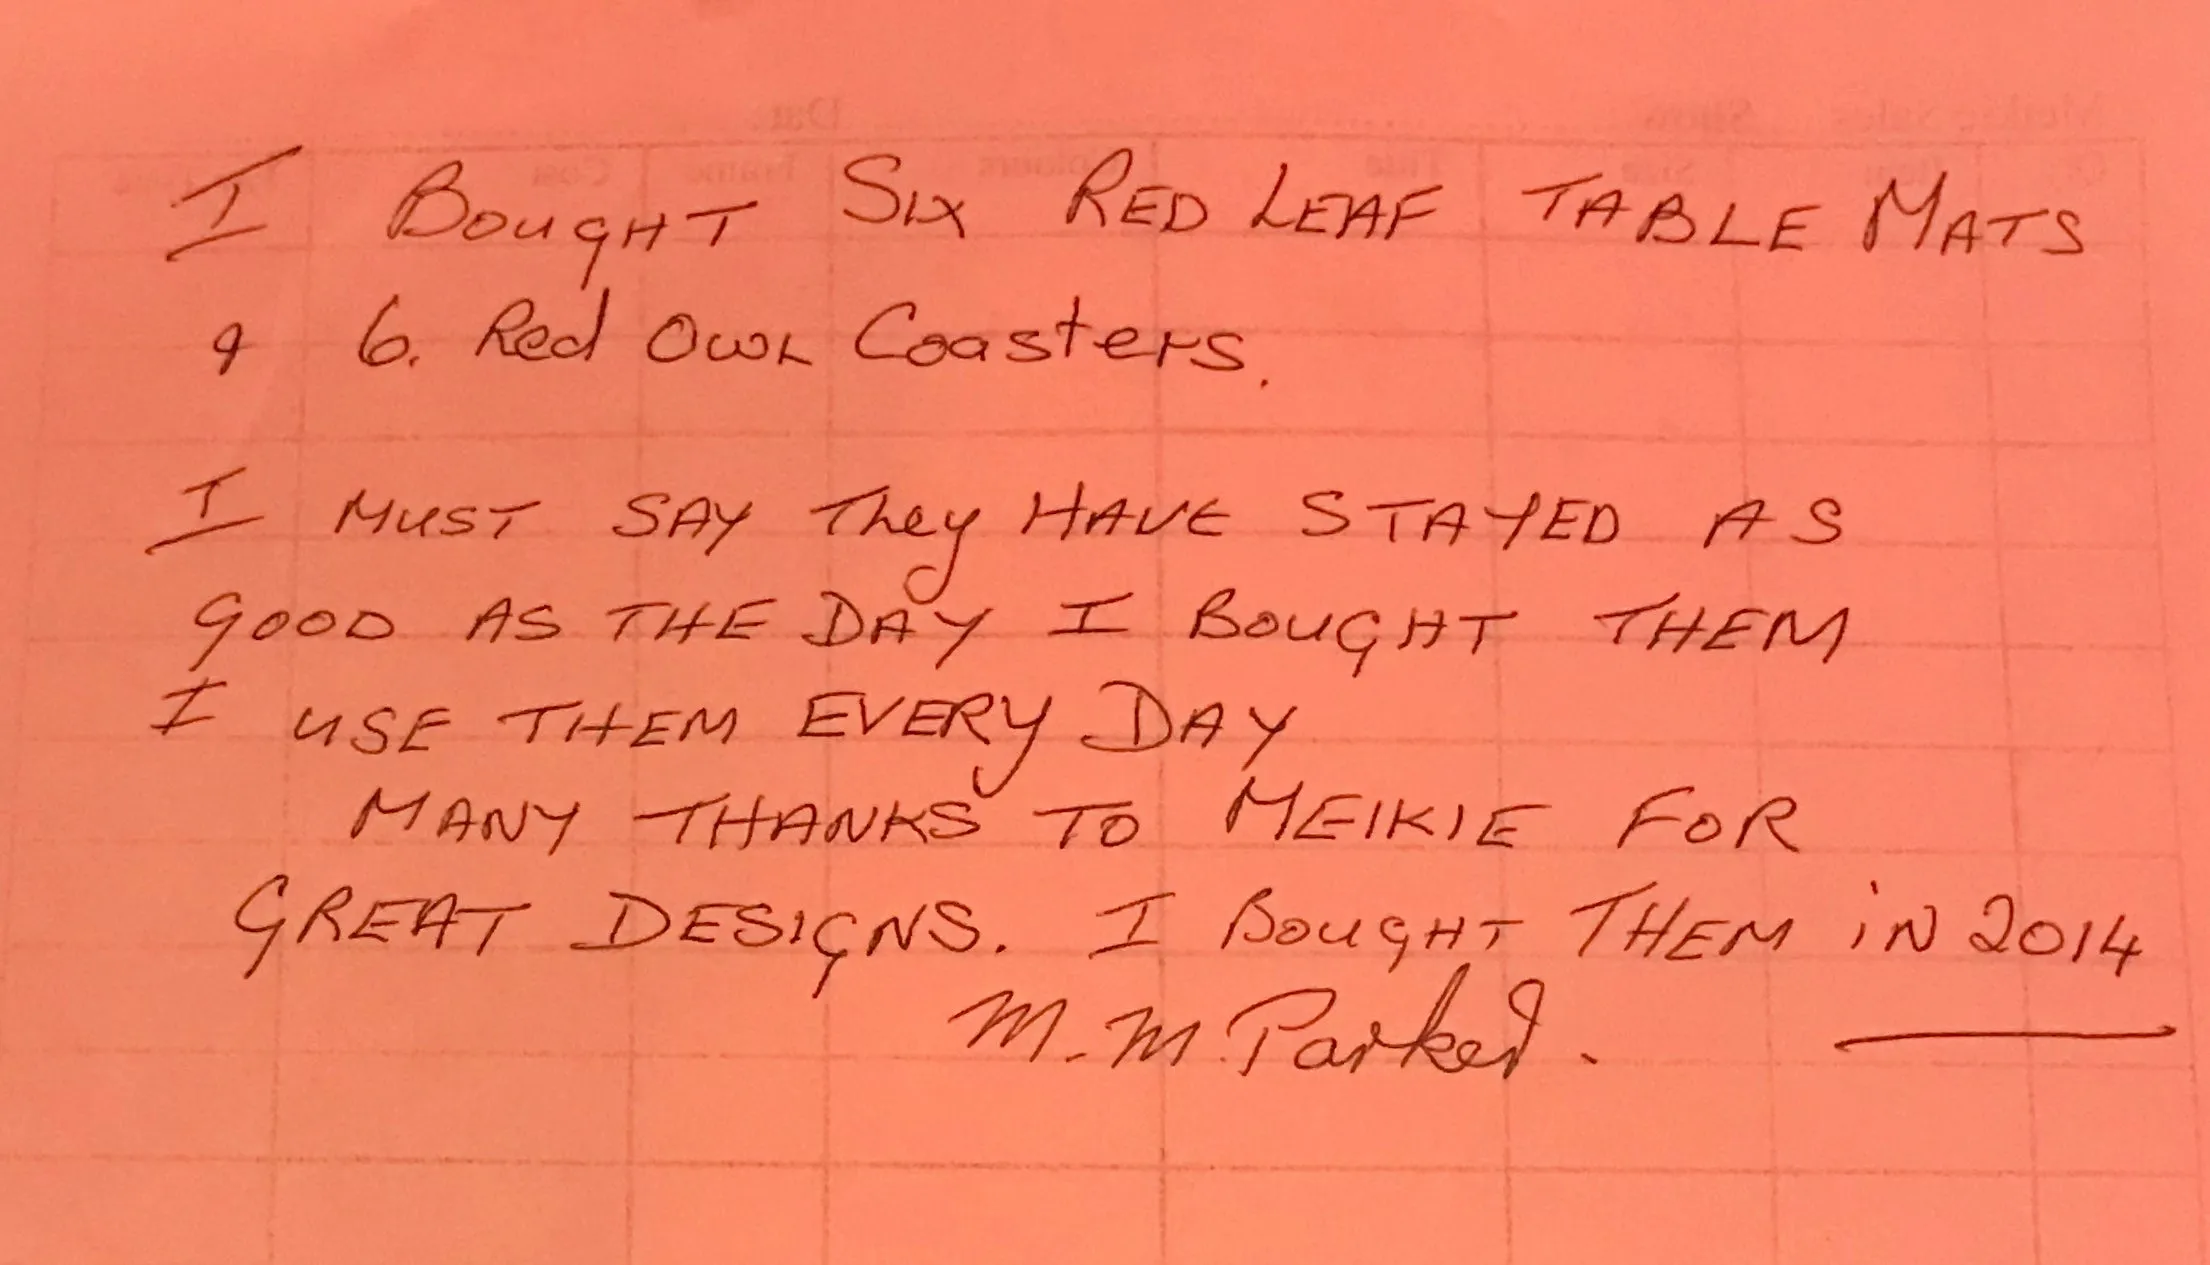 I BOUGHT SIX RED LEAF TABLE MATS
& 6. Red OWL Coasters.
I MUST SAY They HAVE STAYED AS
GOOD AS THE DAY I BOUGHT THEM
I USE THEM EVERY DAY
MANY THANKS TO MEIKIE FOR
GREAT DESIGNS. I BOUGHT THEM iN 2014
M. M. Parker.